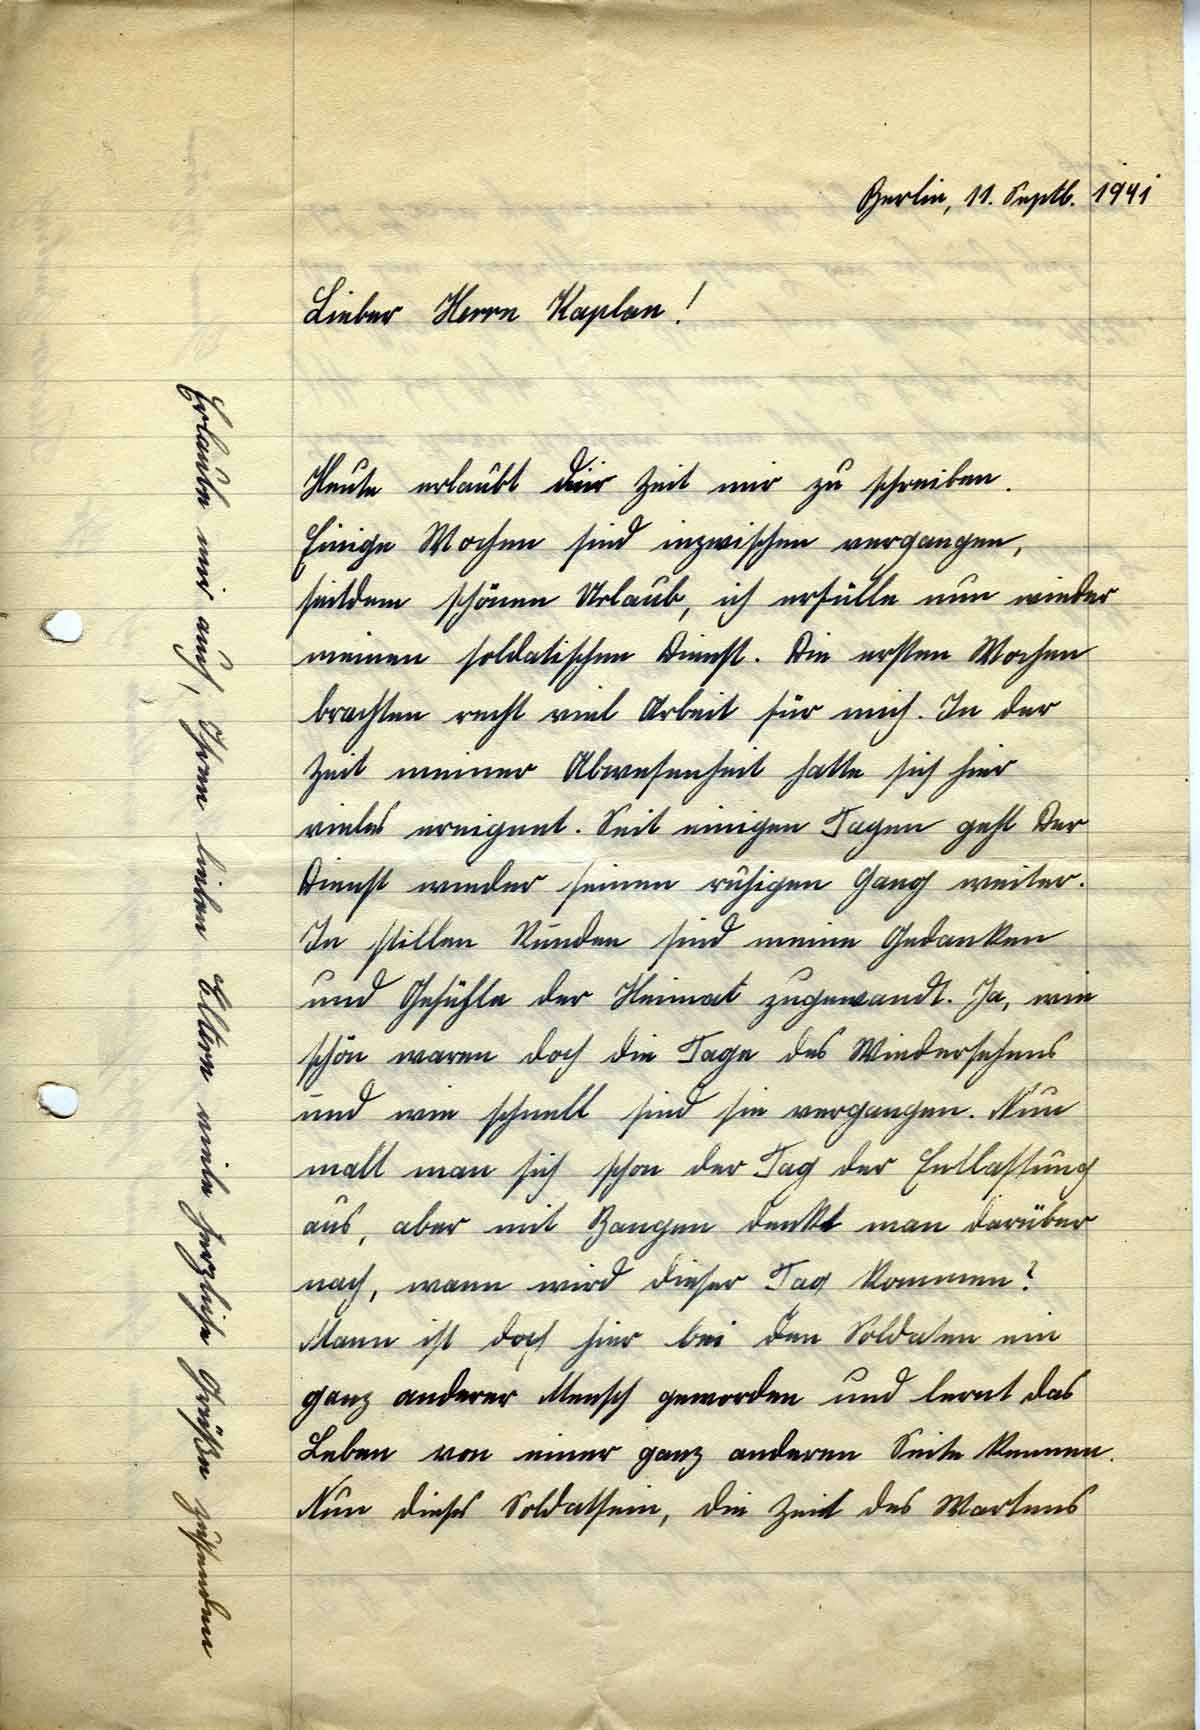 Berlin, 11. Septb. 1941
Lieber Herrn Kaplan!
Heute erlaubt die Zeit mir zu schreiben.
Einige Wochen sind inzwischen vergangen,
seitdem schönen Urlaub, ich erfülle nun wieder
meinen soldatischen Dienst. Die ersten Wochen
brachten recht viel Arbeit für mich. In der
Zeit meiner Abwesenheit hatte sich hier
vieles ereignet. Seit einigen Tagen geht der
Dienst wieder seinen ruhigen Gang weiter.
In stillen Stunden sind meine Gedanken
und Gefühle der Heimat zugewandt. Ja, wie
schön waren doch die Tage des Wiedersehens
und wie schnell sind sie vergangen. Nun
malt man sich schon der Tag der Entlassung
aus, aber mit Bangen denkt man darüber
nach, wann wird dieser Tag kommen?
Mann ist doch hier bei den Soldaten ein
ganz anderer Mensch geworden und lernt das
Leben von einer ganz anderen Seite kennen.
Nun dieses Soldatsein, die Zeit des Wartens
Erlaube mir auch, Ihren lieben Eltern meine herzliche Grüße zusenden